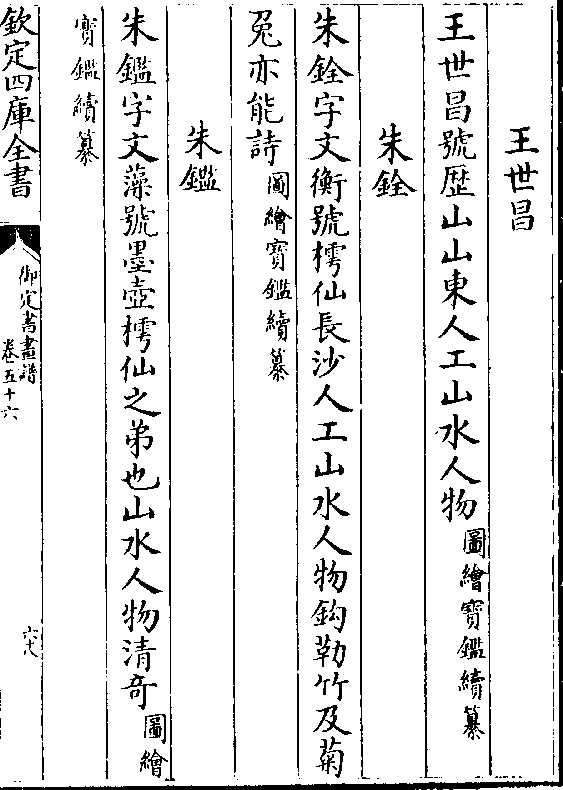 王世昌
王世昌號歴山山東人工山水人物圖繪寳鑑續纂
朱銓
朱銓字文衡號樗仙長沙人工山水人物鈎勒竹及菊
兎亦能詩圖繪寳鑑續纂
朱鑑
朱鑑字文藻號墨壺樗仙之弟也山水人物清奇圖繪
寳鑑續纂
欽定四庫全書
御定書畫譜
卷五十六
六十八